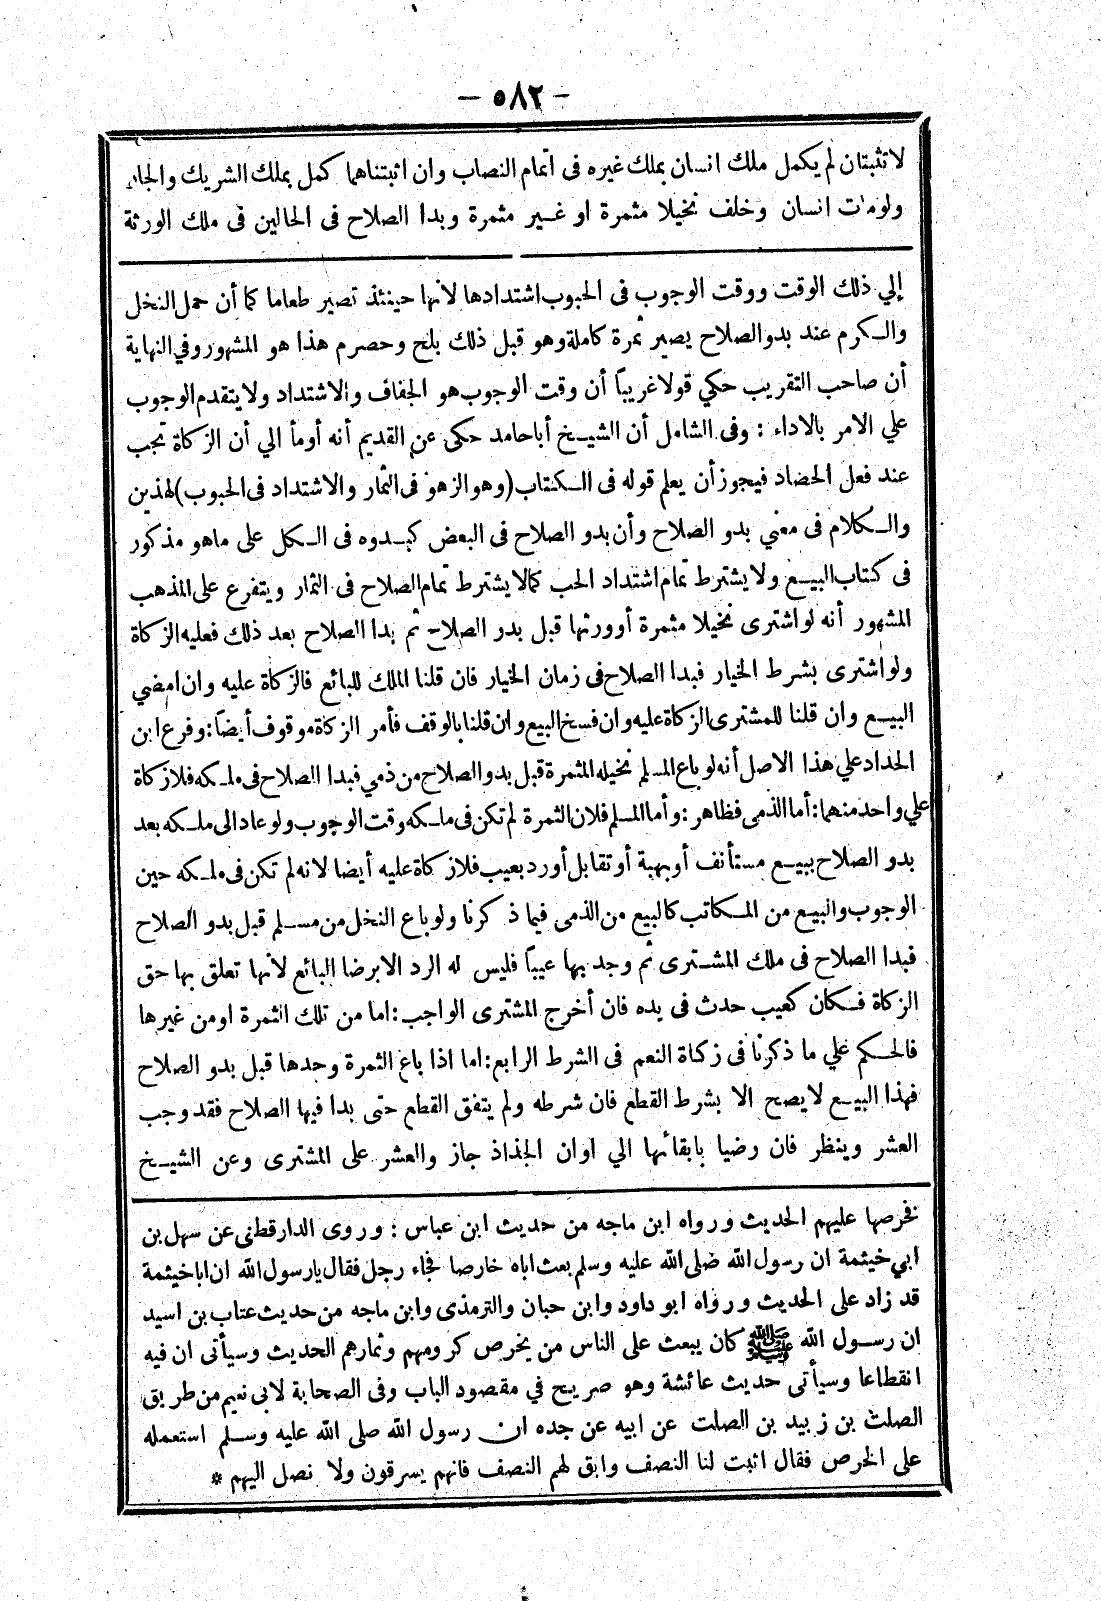 - ٥٨٢ -
لا تثبتان لم يكمل ملك انسان بملك غيره فى اتمام النصاب وان اثبتناهما كمل بملك الشريك والجار
ولومات انسان وخلف نخيلا مثمرة او غير مثمرة وبدا الصلاح فى الحالين فى ملك الورثة
إلي ذلك الوقت ووقت الوجوب فى الحبوب اشتدادها لانها حينئذ تصير طعاما كما أن حمل النخل
والكرم عند بدو الصلاح يصير ثمرة كاملة وهو قبل ذلك بلح وحصرم هذا هو المشهور وفي النهاية
أن صاحب التقريب حكي قولا غريباً أن وقت الوجوب هو الجفاف والاشتداد ولا يتقدم الوجوب
علي الامر بالاداء : وفى الشامل أن الشيخ أباحامد حكى عن القديم أنه أومأ الي أن الزكاة تجب
عند فعل الحضاد فيجوز أن يعلم قوله فى الكتاب (وهو الزهو فى الثمار والاشتداد فى الحبوب) لهذين
والكلام فى معني بدو الصلاح وأن بدو الصلاح فى البعض كبدوه فى الكل على ماهو مذكور
فى كتاب البيع ولا يشترط تمام اشتداد الحب كمالا يشترط تمام الصلاح فى الثمار ويتفرع على المذهب
المشهور أنه لو اشترى نخيلا مثمرة أوورثها قبل بدو الصلاح ثم بدا الصلاح بعد ذلك فعليه الزكاة
ولو اشترى بشرط الخيار فبدا الصلاح فى زمان الخيار فان قلنا الملك للبائع فالزكاة عليه وان امضي
البيع وان قلنا للمشترى الزكاة عليه وان فسخ البيع وان قلنا بالوقف فأمر الزكاة موقوف أيضاً : وفرع ابن
الحداد علي هذا الاصل أنه لو باع المسلم نخيله المثمرة قبل بدو الصلاح من ذمي فبدا الصلاح فى ملكه فلا زكاة
علي واحد منهما : أما الذمى فظاهر : وأما المسلم فلان الثمرة لم تكن فى ملكه وقت الوجوب ولو عاد الى ملكه بعد
بدو الصلاح ببيع مستأنف أو بهبة أو تقابل أورد بعيب فلا زكاة عليه أيضا لانه لم تكن فى ملكه حين
الوجوب والبيع من المكاتب كالبيع من الذمى فيما ذكرنا ولو باع النخل من مسلم قبل بدو الصلاح
فبدا الصلاح فى ملك المشترى ثم وجد بها عيباً فليس له الرد الا برضا البائع لانها تعلق بها حق
الزكاة فكان كعيب حدث فى يده فان أخرج المشترى الواجب : اما من تلك الثمرة اومن غيرها
فالحكم علي ما ذكرنا فى زكاة النعم فى الشرط الرابع : اما اذا باع الثمرة وحدها قبل بدو الصلاح
فهذا البيع لا يصح الا بشرط القطع فان شرطه ولم يتفق القطع حتى بدا فيها الصلاح فقد وجب
العشر وينظر فان رضيا بابقائها الي اوان الجذاذ جاز والعشر على المشترى وعن الشيخ
فخرصها عليهم الحديث ورواه ابن ماجه من حديث ابن عباس : وروى الدارقطنى عن سهل بن
ابي خيثمة ان رسول الله صلى الله عليه وسلم بعث اباه خارصا فجاء رجل فقال يارسول الله ان اباخيثمة
قد زاد على الحديث ورواه ابو داود وابن حبان والترمذى وابن ماجه من حديث عتاب بن اسيد
ان رسول الله ﷺ كان يبعث على الناس من يخرص كرومهم وثمارهم الحديث وسيأتى ان فيه
انقطاعا وسيأتى حديث عائشة وهو صريح في مقصود الباب وفى الصحابة لابى نعيم من طريق
الصلت بن زبيد بن الصلت عن ابيه عن جده ان رسول الله صلى الله عليه وسلم استعمله
على الخرص فقال اثبت لنا النصف وابق لهم النصف فانهم يسرقون ولا نصل اليهم *